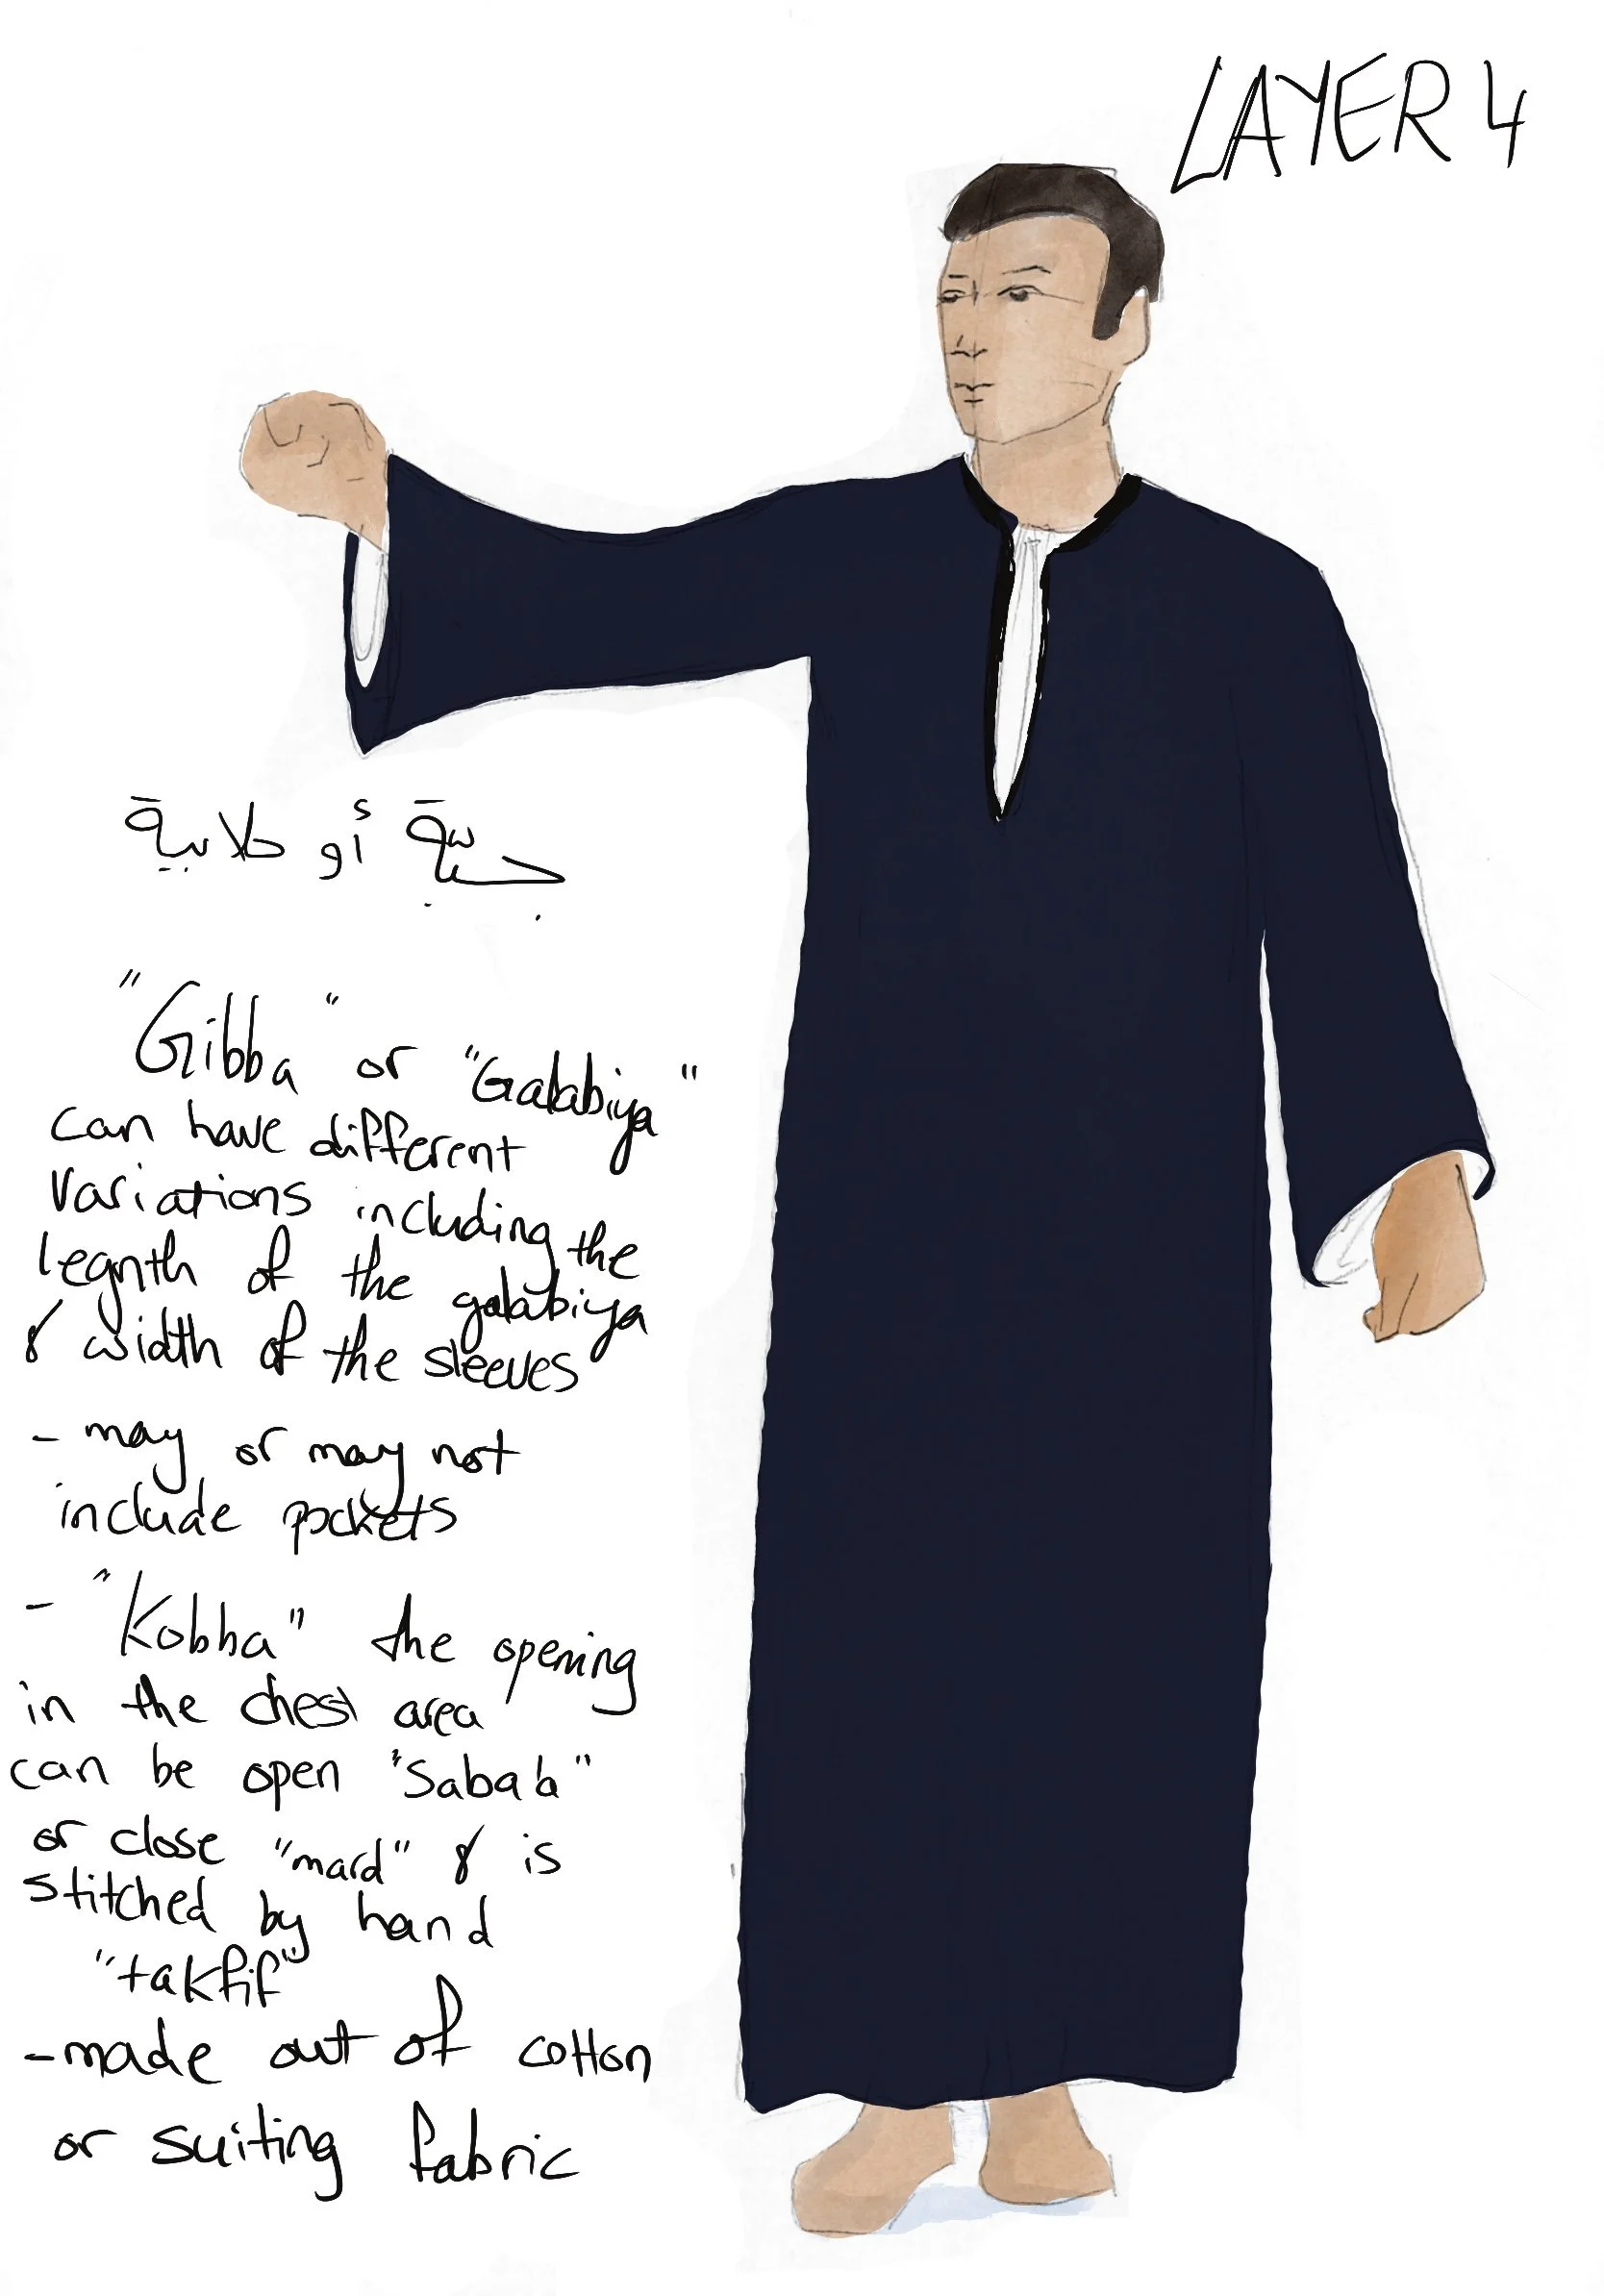 LAYER 4
جبّة أو جلابية
"Gibba" or "Galabiya"
can have different
variations including the
legnth of the galabiya
& width of the sleeves
- may or may not
include pockets
- "Kobba" the opening
in the chest area
can be open "Saba'a"
or close "mard" & is
stitched by hand
"takfif"
- made out of cotton
or suiting fabric